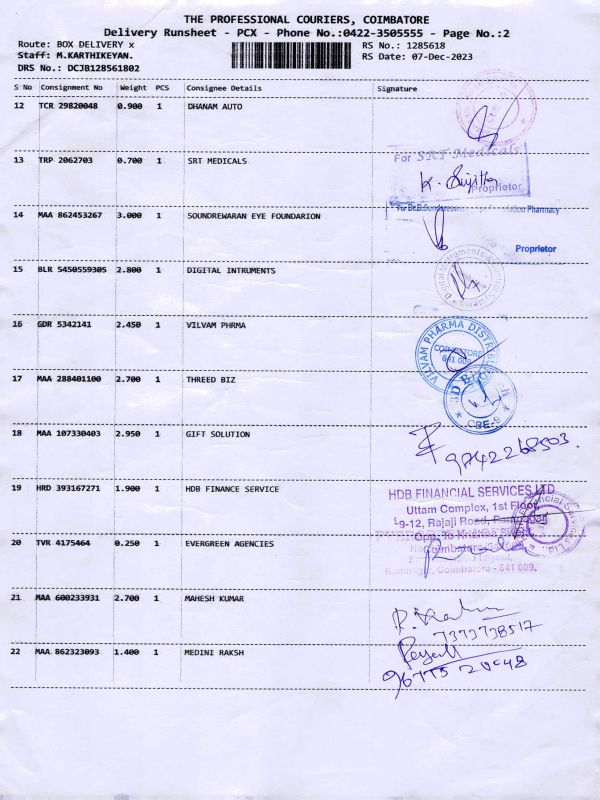 THE PROFESSIONAL COURIERS, COIMBATORE
Delivery Runsheet - PCX - Phone No.:0422-3505555 - Page No.:2
Route: BOX DELIVERY x
RS No.: 1285618
Staff: M.KARTHIKEYAN.
RS Date: 07-Dec-2023
DRS No.: DCJB128561802
S No Consignment No Weight PCS Consignee Details Signature
12 TCR 29820048 0.900 1 DHANAM AUTO
13 TRP 2062703 0.700 1 SRT MEDICALS
For SRT Medicals
Proprietor
14 MAA 862453267 3.000 1 SOUNDREWARAN EYE FOUNDARION
Pharmacy
Proprietor
15 BLR 5450559305 2.800 1 DIGITAL INTRUMENTS
16 GDR 5342141 2.450 1 VILVAM PHRMA
VILVAM PHARMA
COIMBATORE
641 009
17 MAA 288401100 2.700 1 THREED BIZ
CBE-9
18 MAA 107330403 2.950 1 GIFT SOLUTION
9842268503.
19 HRD 393167271 1.900 1 HDB FINANCE SERVICE
HDB FINANCIAL SERVICES LTD
Uttam Complex, 1st Floor,
9-12, Rajaji Road,
20 TVR 4175464 0.250 1 EVERGREEN AGENCIES
Coimbatore - 641 009.
21 MAA 600233931 2.700 1 MAHESH KUMAR
7373738517
22 MAA 862323093 1.400 1 MEDINI RAKSH